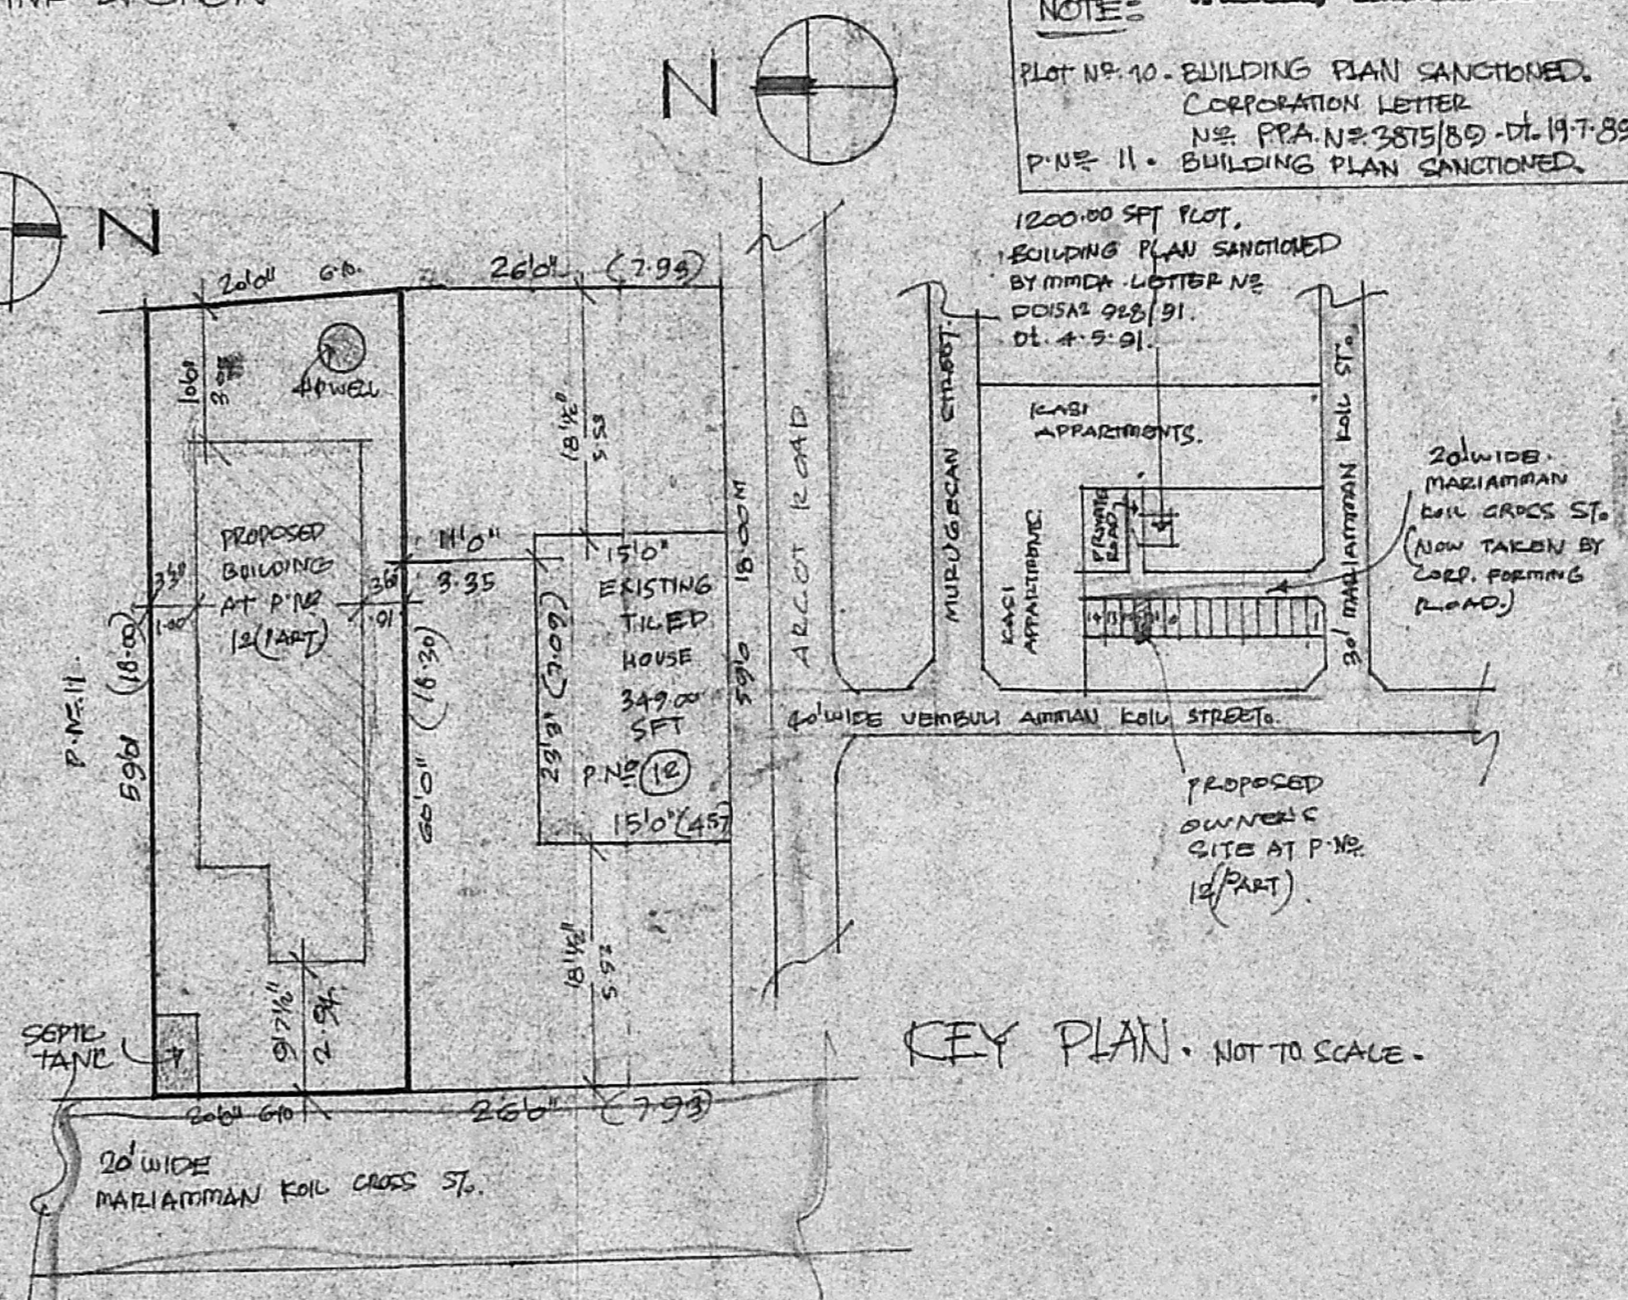 NOTE:
PLOT Nº. 10. BUILDING PLAN SANCTIONED.
CORPORATION LETTER
Nº PPA. Nº. 3875/89 - Dt. 19.7.89
P.Nº 11. BUILDING PLAN SANCTIONED.
N
N
1200.00 SFT PLOT.
BUILDING PLAN SANCTIONED
BY MMDA. LETTER Nº
928/91.
Dt. 4.5.91.
20'0" 6.10.
26'0" (7.93)
10'0"
APWELL
18'1½"
5.53
PROPOSED
BUILDING
AT P.Nº
12(PART)
3'3"
1.00
3'0"
.91
11'0"
3.35
15'0"
EXISTING
TILED
HOUSE
349.00
SFT
P.Nº 12
15'0" (4.57)
23'3" (7.09)
59'0 18.00M
P.Nº.11.
59'0" (18.00)
60'0" (18.30)
18'1½"
5.52
9'7½"
2.94
SEPTIC
TANK
20'0" 6.10
26'0" (7.93)
20' WIDE
MARIAMMAN KOIL CROSS ST.
ARCOT ROAD.
MURUGESAN STREET.
KASI
APPARTMENTS.
KASI
APPARTMENTS.
PRIVATE
ROAD
14 13
1
30' MARIAMMAN KOIL ST.
20' WIDE.
MARIAMMAN
KOIL CROSS ST.
(NOW TAKEN BY
CORP. FORMING
ROAD.)
40' WIDE VEMBULI AMMAN KOIL STREET.
PROPOSED
OWNER'S
SITE AT P.Nº.
12(PART).
KEY PLAN. NOT TO SCALE.